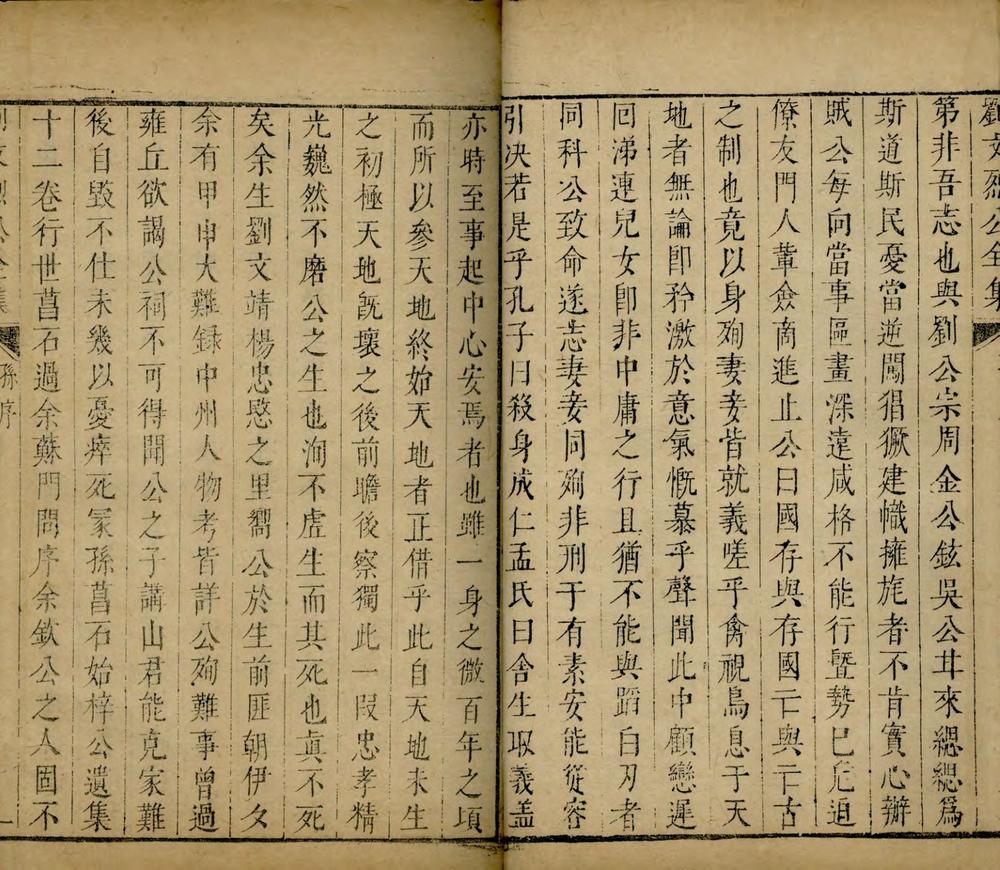 劉文烈公全集
第非吾志也與劉公宗周金公鉉吳公甘來緦緦爲
斯道斯民憂當逆闖猖獗建幟擁旄者不肯實心辦
賊公每向當事區畫深遠咸格不能行曁勢已危迫
僚友門人輩僉商進止公曰國存與存國亡與亡古
之制也竟以身殉妻妾皆就義嗟乎禽視鳥息于天
地者無論卽矜激於意氣慨慕乎聲聞此中顧戀遲
回涕連兒女卽非中庸之行且猶不能與蹈白刃者
同科公致命遂志妻妾同殉非刑于有素安能從容
引决若是乎孔子曰殺身成仁孟氏曰舍生取義盖
亦時至事起中心安焉者也雖一身之微百年之頃
而所以參天地終始天地者正借乎此自天地未生
之初極天地旣壞之後前瞻後察獨此一叚忠孝精
光巍然不磨公之生也洵不虛生而其死也眞不死
矣余生劉文靖楊忠愍之里嚮公於生前匪朝伊夕
余有甲申大難録中州人物考皆詳公殉難事曾過
雍丘欲謁公祠不可得聞公之子講山君能克家難
後自毀不仕未幾以憂瘁死冢孫菖石始梓公遺集
十二卷行世菖石過余蘇門問序余欽公之人固不
劉文烈公全集
孫序
一